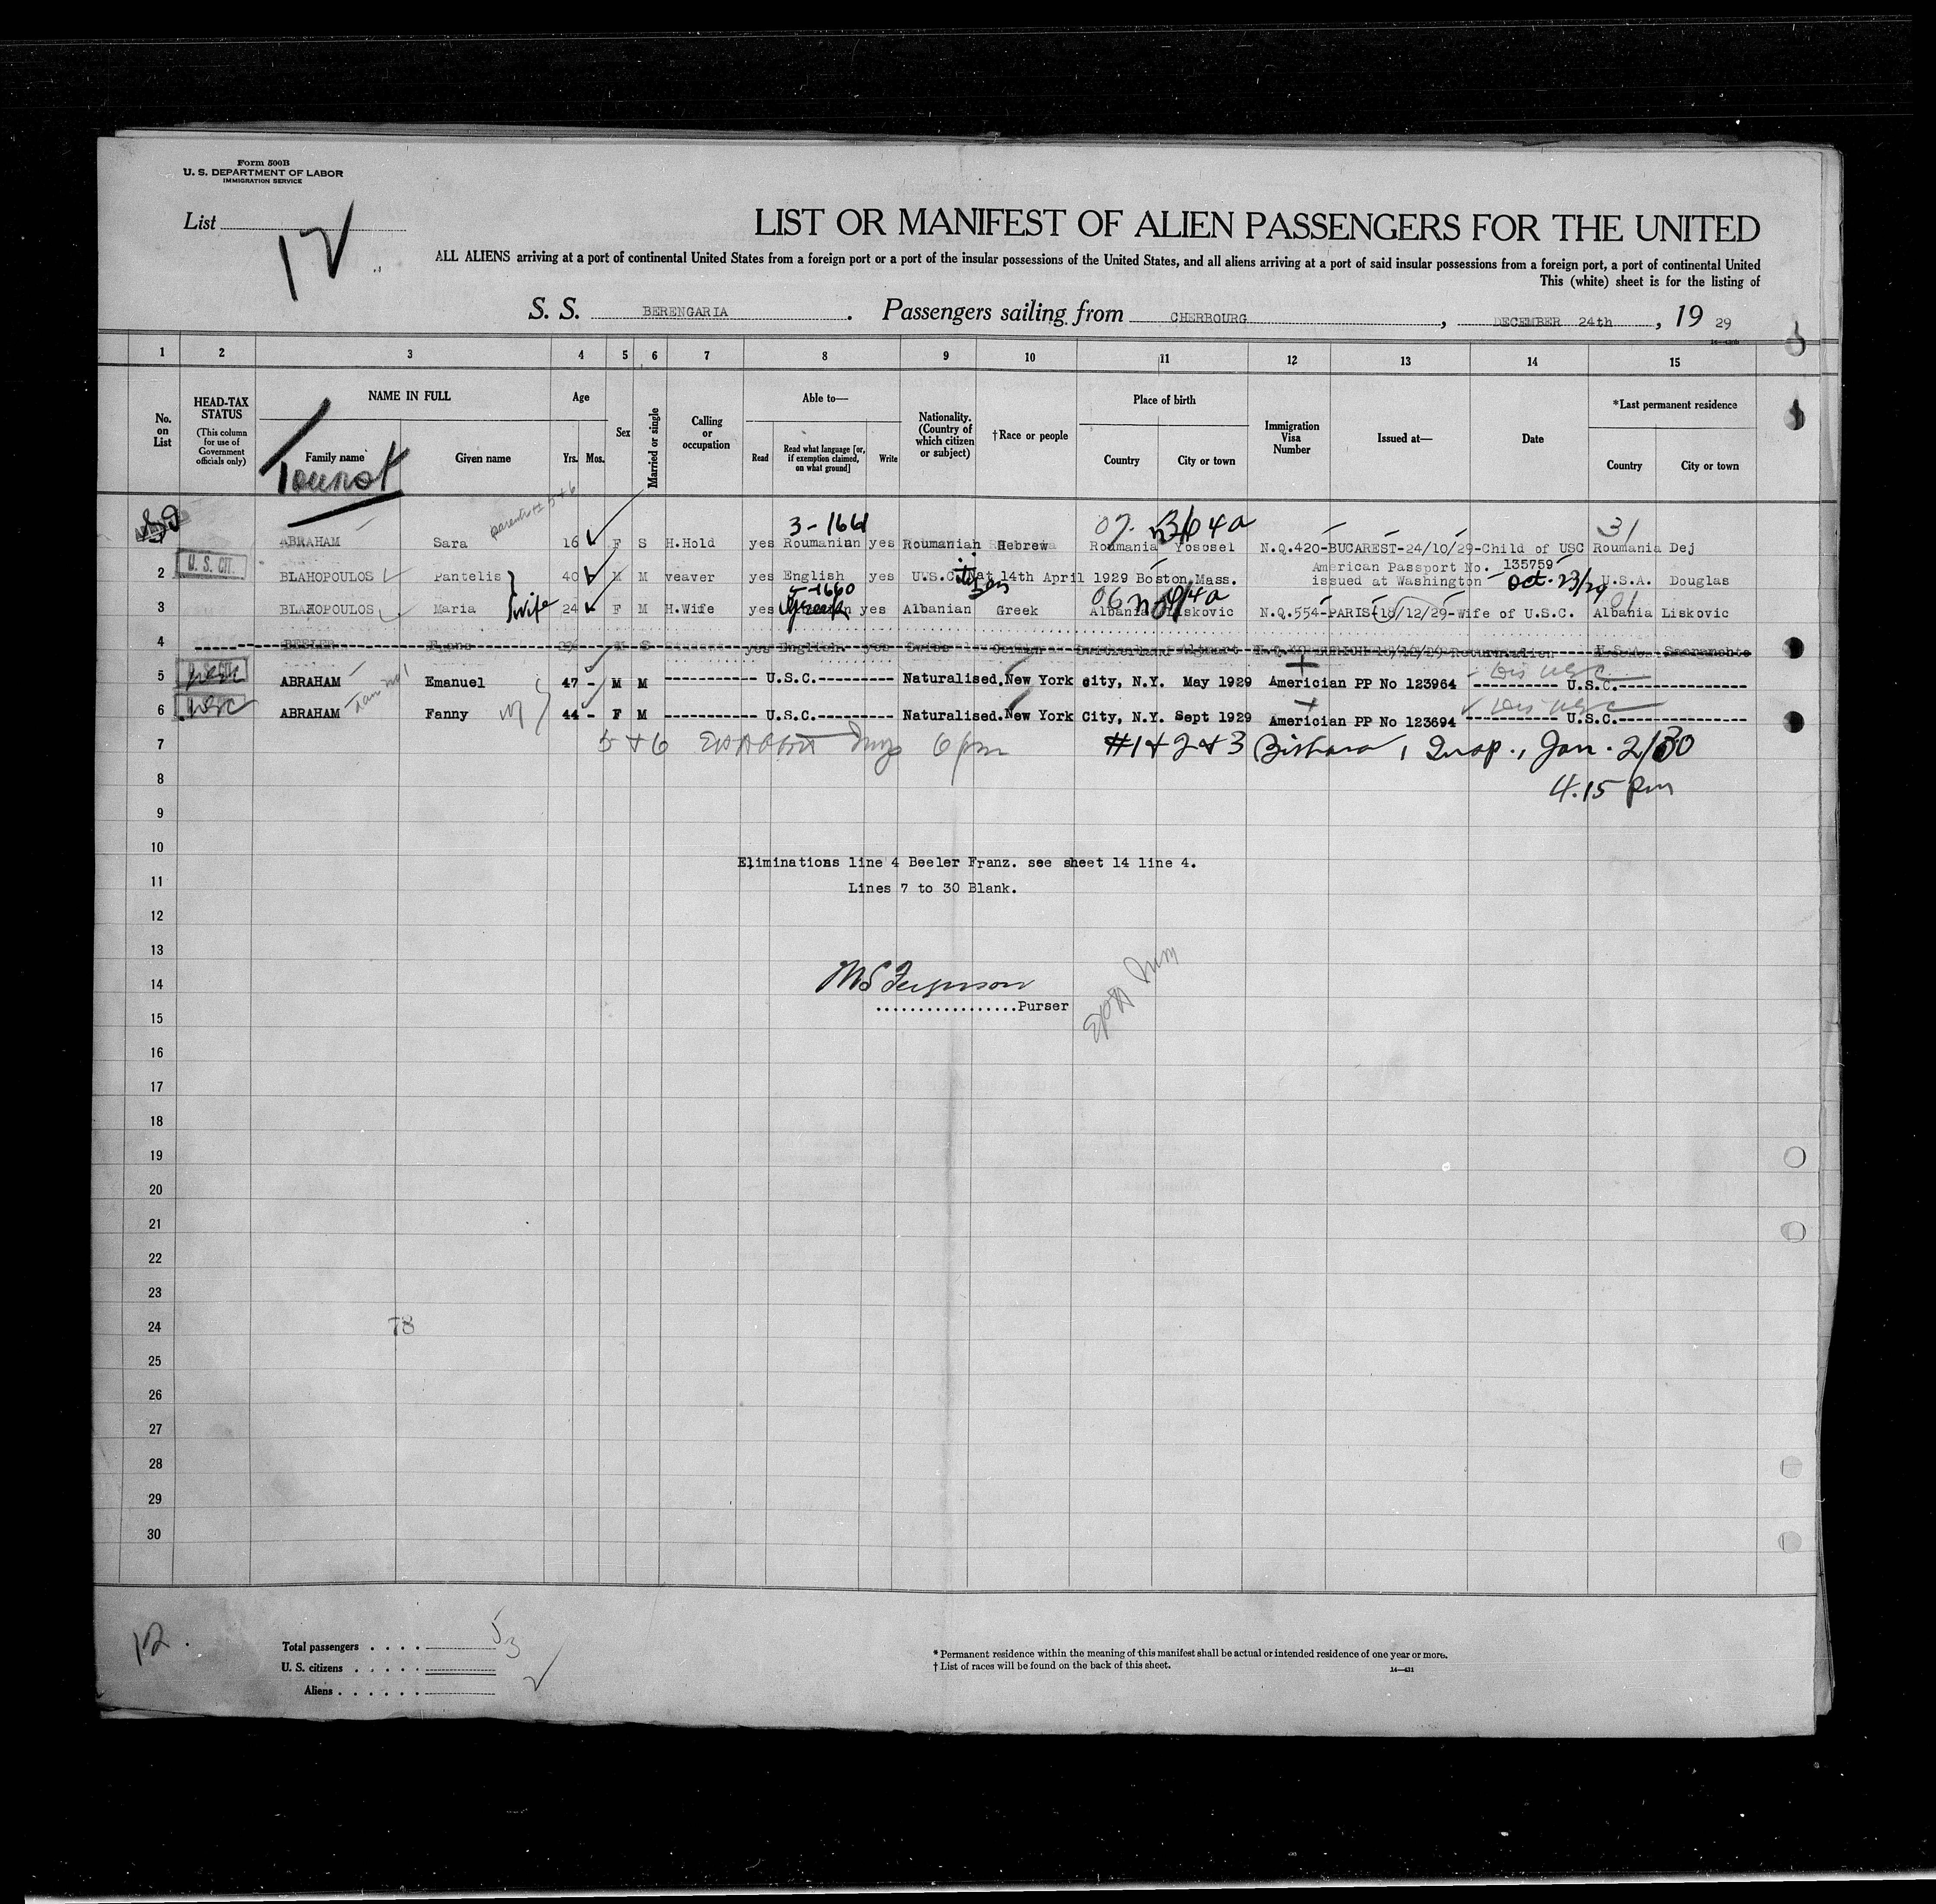 Form 500B
U. S. DEPARTMENT OF LABOR
IMMIGRATION SERVICE
List 12
LIST OR MANIFEST OF ALIEN PASSENGERS FOR THE UNITED
ALL ALIENS arriving at a port of continental United States from a foreign port or a port of the insular possessions of the United States, and all aliens arriving at a port of said insular possessions from a foreign port, a port of continental United
This (white) sheet is for the listing of
S. S. BERENGARIA. Passengers sailing from CHERBOURG, DECEMBER 24th, 19 29
1 2 3 4 5 6 7 8 9 10 11 12 13 14 15
No. on List
HEAD-TAX STATUS
(This column for use of Government officials only)
NAME IN FULL
Family name
Given name
Age
Yrs. Mos.
Sex
Married or single
Calling or occupation
Able to—
Read
Read what language [or, if exemption claimed, on what ground]
Write
Nationality. (Country of which citizen or subject)
†Race or people
Place of birth
Country
City or town
Immigration Visa Number
Issued at—
Date
*Last permanent residence
Country
City or town
Tourist
parents # 5 + 6
3-1661
1 ABRAHAM Sara 16 F S H.Hold yes Roumanian yes Roumanian Hebrew Roumania Yososel N.Q.420-BUCAREST-24/10/29-Child of USC Roumania Dej
31
2 U. S. CIT. BLAHOPOULOS Pantelis 40 M M weaver yes English yes U.S.Citizen Nat 14th April 1929 Boston, Mass. American Passport No. 135759 issued at Washington Oct. 23/29 U.S.A. Douglas
5-1660
3 BLAHOPOULOS Maria wife 24 F M H.Wife yes Greek yes Albanian Greek Albania Liskovic N.Q.554-PARIS-18/12/29-Wife of U.S.C. Albania Liskovic
4 BEELER Franz M S Student yes English yes Swiss German Switzerland Altdorf U.S.A. Sacramento
5 ABRAHAM Emanuel 47 - M M ----------- U.S.C.--------- Naturalised.New York city, N.Y. May 1929 Americian PP No 123964 ---------- U.S.C.---------------
6 ABRAHAM Fanny 44 - F M ----------- U.S.C.--------- Naturalised.New York City, N.Y. Sept 1929 Americian PP No 123694 ---------- U.S.C.---------------
7 5 + 6 6 pm #1 & 2 & 3 Insp., Jan. 2/30
8 4.15 Pm
9
10
Eliminations line 4 Beeler Franz. see sheet 14 line 4.
11
Lines 7 to 30 Blank.
12
13
14 Ferguson
.................Purser
15
16
17
18
19
20
21
22
23
24 78
25
26
27
28
29
30
12.
Total passengers . . . . 5
U. S. citizens . . . . . 3
Aliens . . . . . . 2
* Permanent residence within the meaning of this manifest shall be actual or intended residence of one year or more.
† List of races will be found on the back of this sheet.
14—421